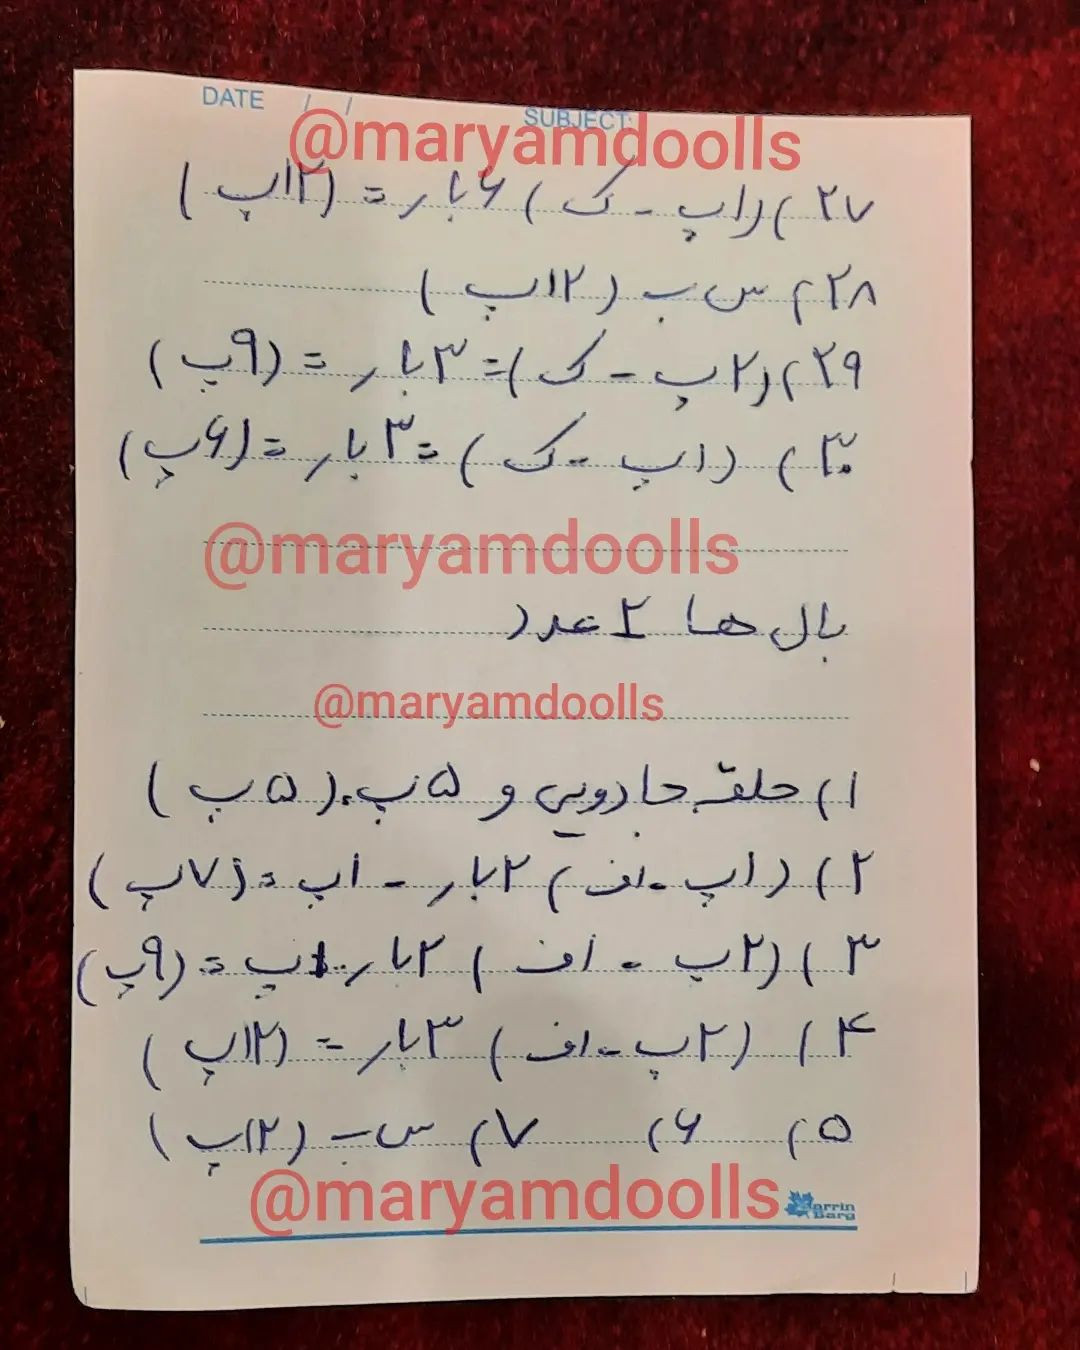 DATE / / SUBJECT:
@maryamdoolls
۲۷) (۱پ - ک) ۶ بار = (۱۲پ)
۲۸) س ب (۱۲پ)
۲۹) (۲پ - ک) = ۳ بار = (۹پ)
۳۰) (۱پ - ک) = ۳ بار = (۶پ)
@maryamdoolls
بال ها ۲ عدد
@maryamdoolls
۱) حلقه جادویی و ۵پ. (۵پ)
۲) (۱پ - اف) ۲ بار - ۱پ = (۷پ)
۳) (۲پ - اف) ۲ بار. ۱پ = (۹پ)
۴) (۲پ - اف) ۳ بار = (۱۲پ)
۵) ۶) ۷) س ب (۱۲پ)
@maryamdoolls
Marrin Barg